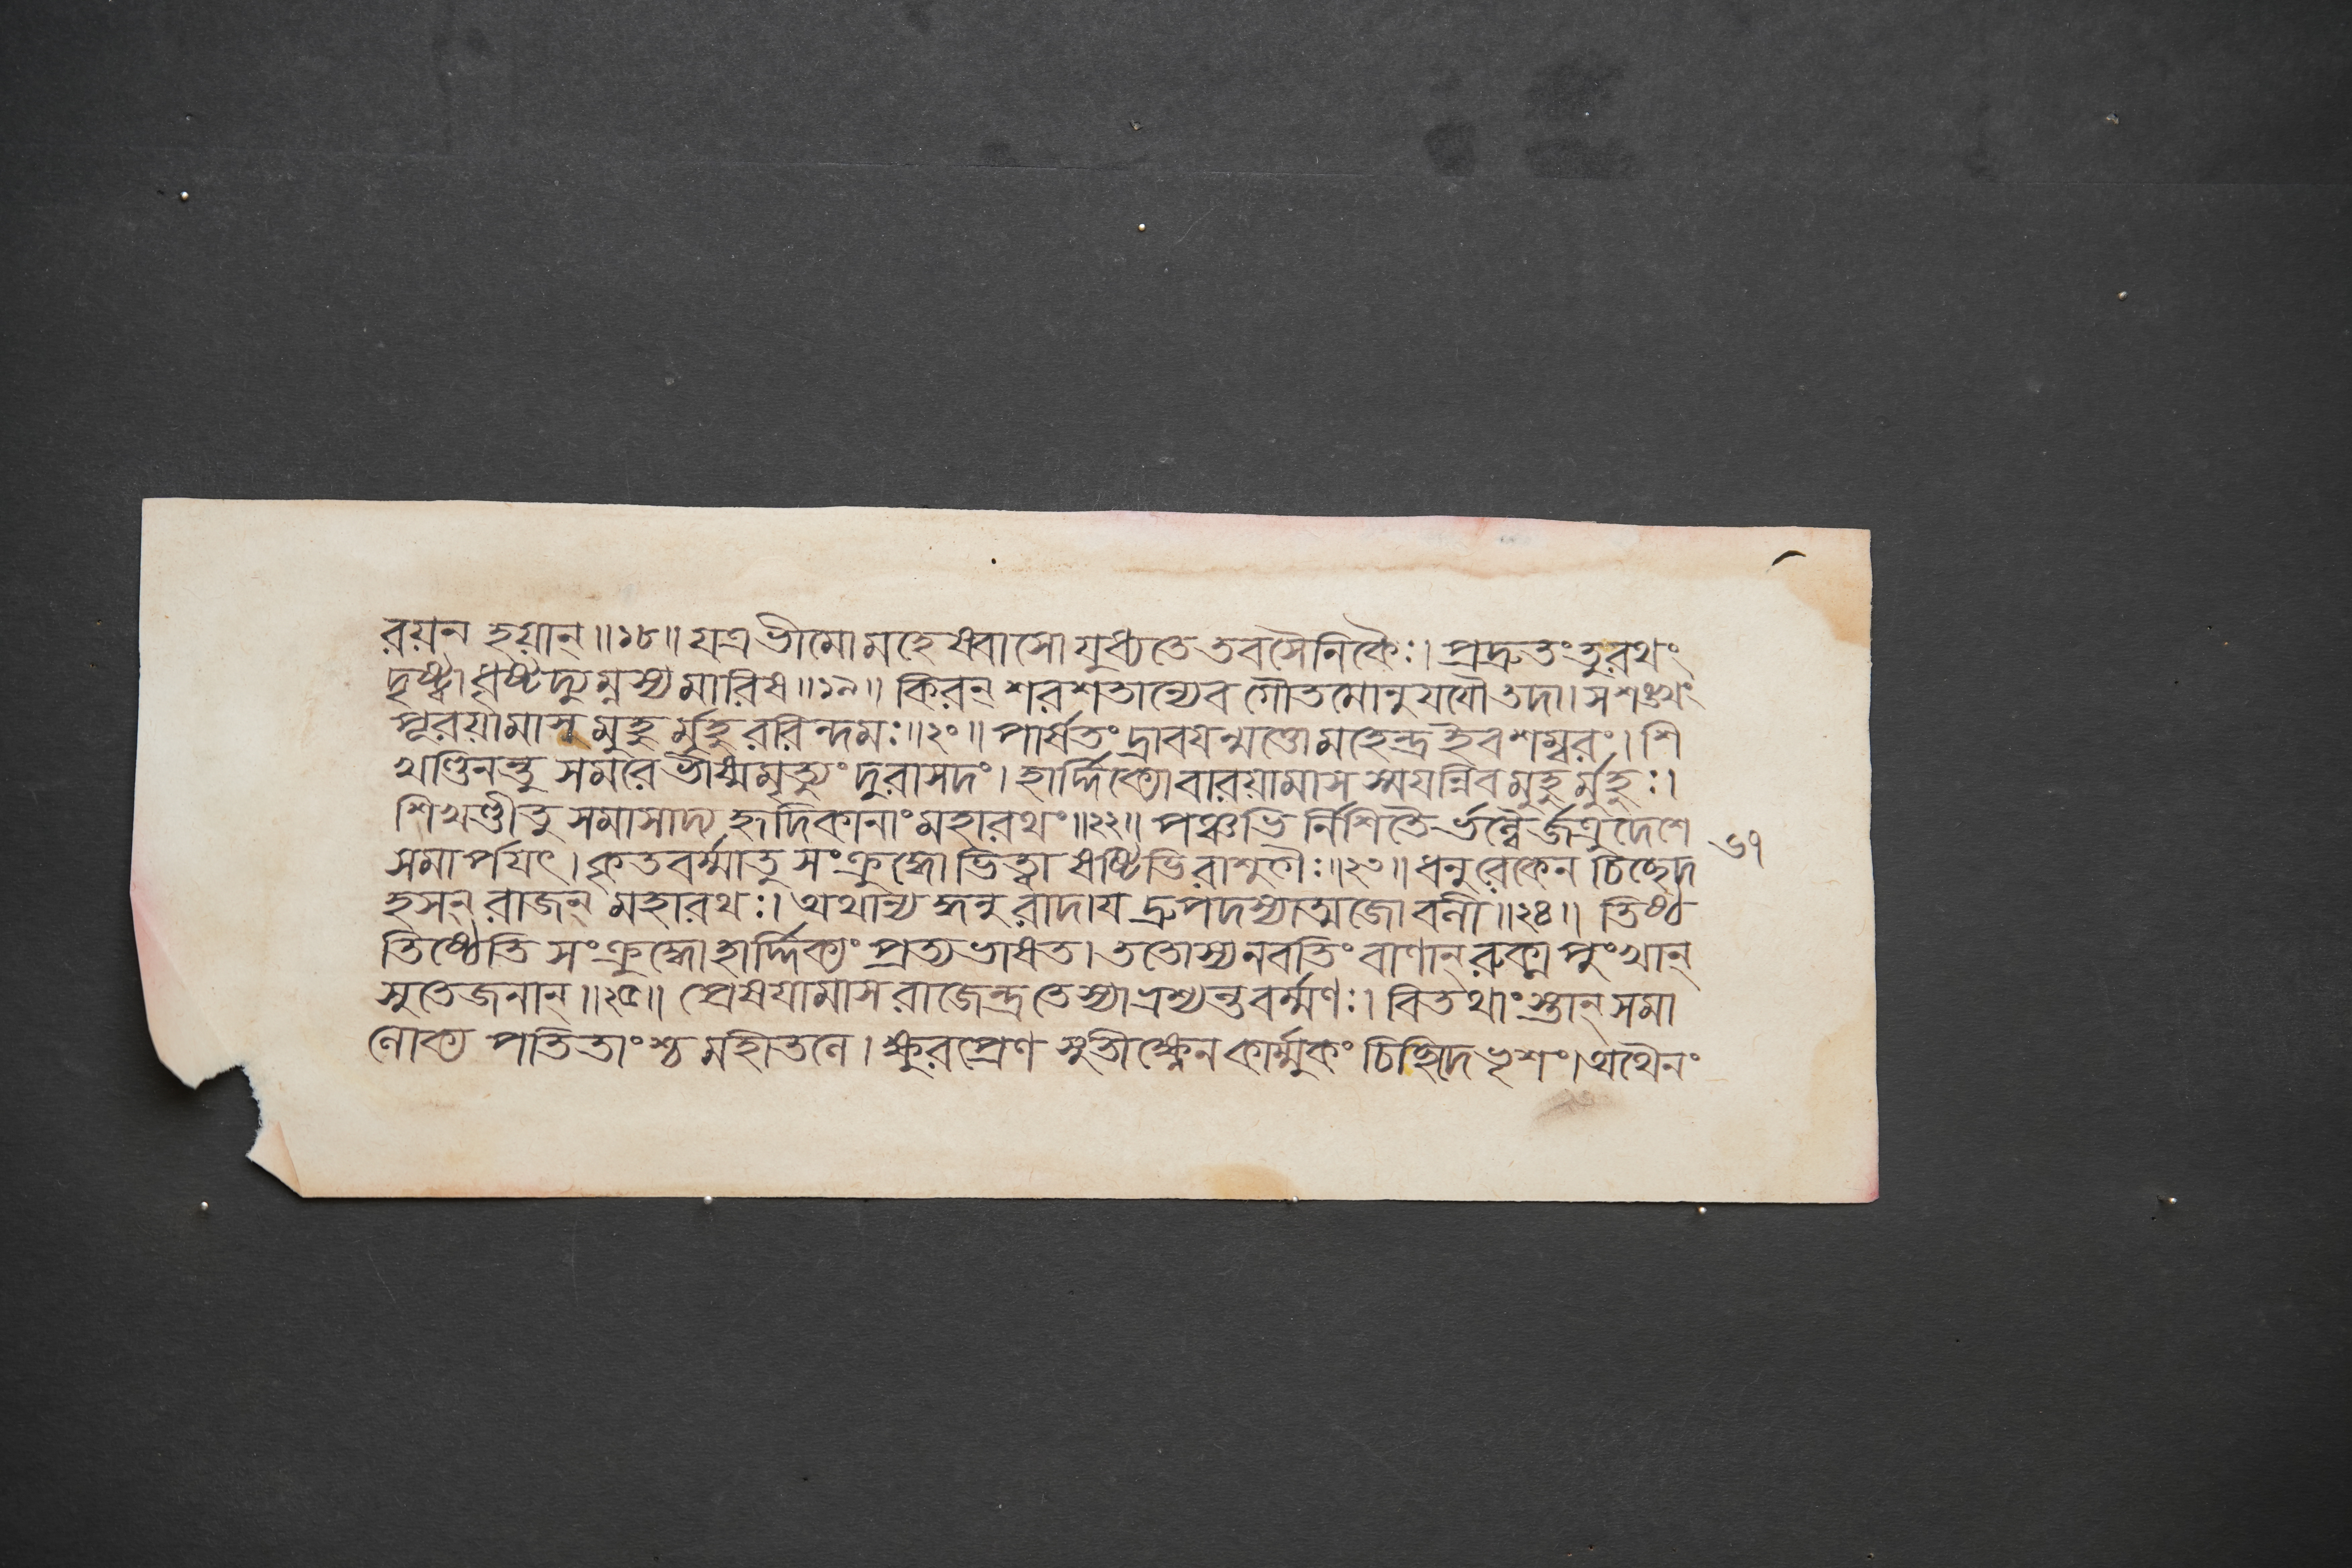 রয়ন হয়ান্॥১৮॥ যত্র ভীমো মহেষ্বাসো যুধ্যতে তবসৈনিকৈঃ। প্রদ্রুতং তু রথং
দৃষ্ট্বা ধৃষ্টদ্যুম্নস্য মারিষ॥১৯॥ কিরন্ শরশতান্যেব গৌতমোনুযযৌ তদা। স শঙ্খং
পূরয়ামাস মুহুর্মুহুররিন্দমঃ॥২০॥ পার্ষতং দ্রাবয়ন্মত্তো মহেন্দ্র ইব শম্বরং। শি
খণ্ডিনন্তু সমরে ভীষ্মমৃত্যুং দুরাসদং। হার্দ্দিক্যো বারয়ামাস স্ময়ন্নিব মুহুর্মুহুঃ।
শিখণ্ডী তু সমাসাদ্য হৃদিকানাং মহারথং॥২২॥ পঞ্চভি র্নিশিতৈর্ভল্লৈর্জত্রুদেশে
সমার্পয়ৎ। কৃতবর্ম্মা তু সংক্রুদ্ধো ভিত্ত্বা ষষ্টিভিরাশুগৈঃ॥২৩॥ ধনুরেকেন চিচ্ছেদ
৬৭
হসন্ রাজন্ মহারথঃ। অথান্যদ্ধনু রাদায় দ্রুপদস্যাত্মজো বলী॥২৪॥ তিষ্ঠ
তিষ্ঠেতি সংক্রুদ্ধো হার্দ্দিক্যং প্রত্যভাষত। ততোস্য নবতিং বাণান্ রুক্ম পুংখান্
সুতেজনান্॥২৫॥ প্রেষয়ামাস রাজেন্দ্র তেস্যাভ্রশ্যন্ত বর্ম্মণঃ। বিতথাংস্তান্ সমা
লোক্য পতিতাংশ্চ মহীতলে। ক্ষুরপ্রেণ সুতীক্ষ্ণেন কার্ম্মুকং চিচ্ছিদে ভৃশং। অথৈনং